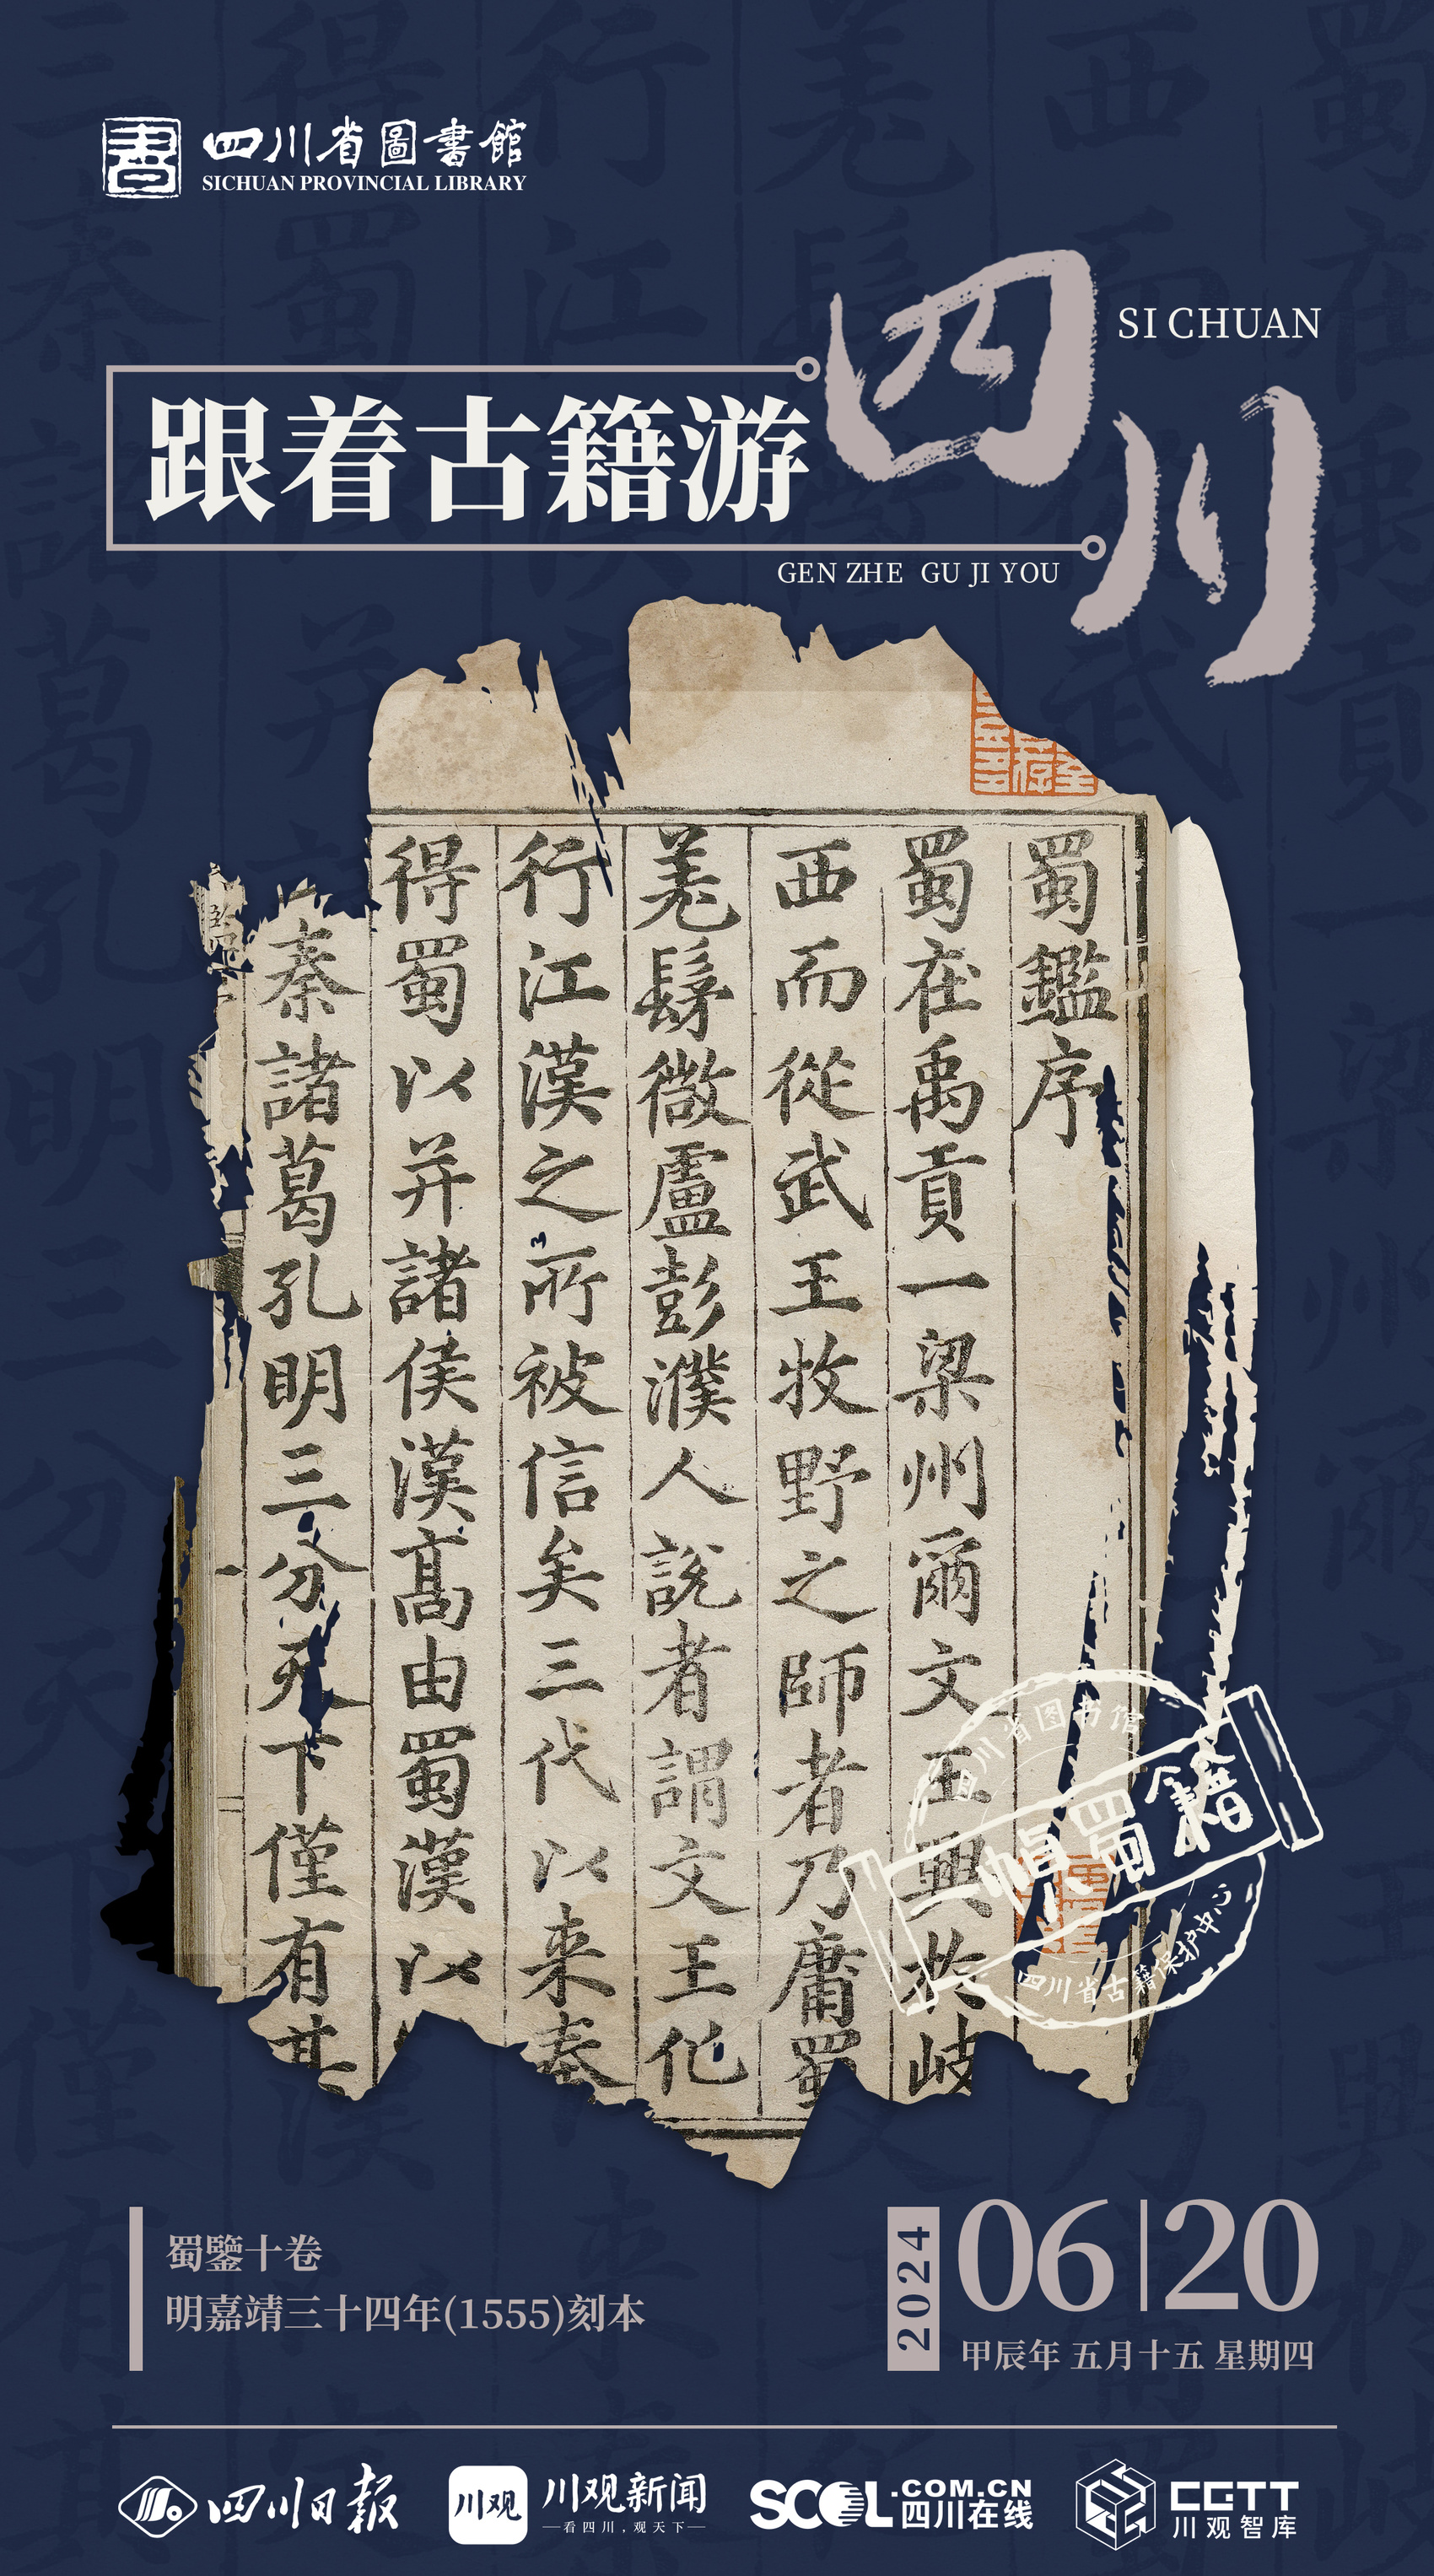 四川省圖書館
SICHUAN PROVINCIAL LIBRARY
四川
SI CHUAN
跟着古籍游
GEN ZHE GU JI YOU
蜀鑑序
蜀在禹貢一梁州爾文王興於岐
西而從武王牧野之師者乃庸蜀
羌髳微盧彭濮人說者謂文王化
行江漢之所被信矣三代以来秦
得蜀以并諸侯漢髙由蜀漢以
秦諸葛孔明三分天下僅有其
四川省图书馆
一帧蜀籍
四川省古籍保护中心
蜀鑒十卷
明嘉靖三十四年(1555)刻本
2024
06|20
甲辰年 五月十五 星期四
四川日报
川观
川观新闻
看四川，观天下
SCOL.COM.CN
四川在线
CGTT
川观智库